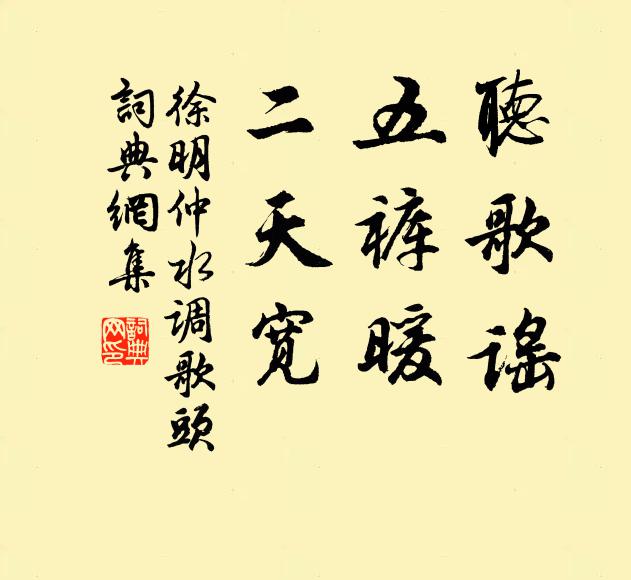 聽歌謠
五裤暖
二天宽
徐明仲水调歌頭
詞典網集
詞典网印